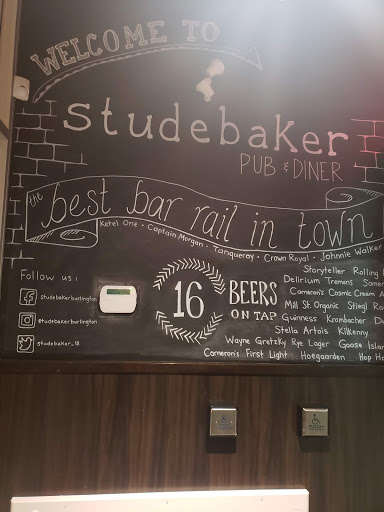 WELCOME TO
studebaker
PUB & DINER
the
best bar rail in town
Ketel One · Captain Morgan · Tanqueray · Crown Royal · Johnnie Walker
Follow us:
studebakerburlington
@studebakerburlington
studebaker_18
16
BEERS
ON TAP
Storyteller Rolling
Delirium Tremens
Cameron's Cosmic Cream
Mill St. Organic Stiegl
Guinness Krombacher
Stella Artois Kilkenny
Wayne Gretzky Rye Lager Goose
Cameron's First Light Hoegaarden Hop